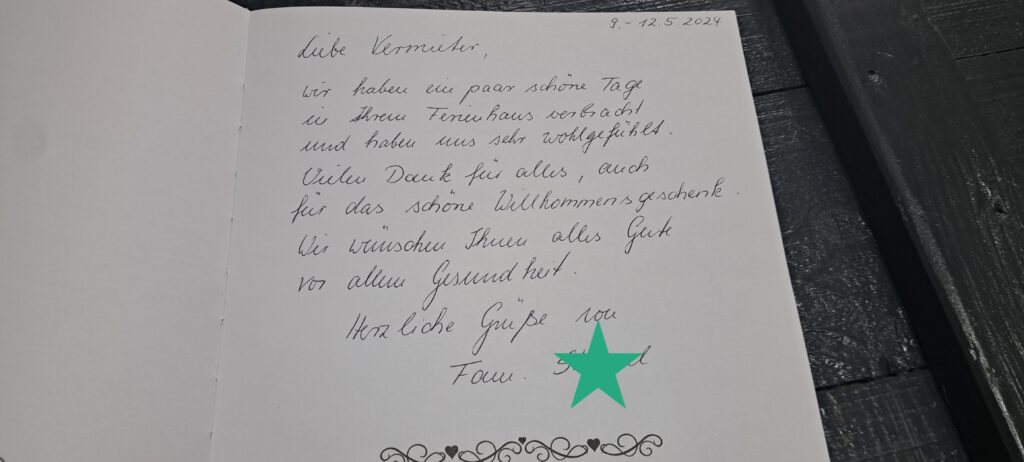 9.- 12.5.2024
Liebe Vermieter,
wir haben ein paar schöne Tage
in Ihrem Ferienhaus verbracht
und haben uns sehr wohlgefühlt.
Vielen Dank für alles, auch
für das schöne Willkommensgeschenk.
Wir wünschen Ihnen alles Gute
vor allem Gesundheit.
Herzliche Grüße von
Fam.